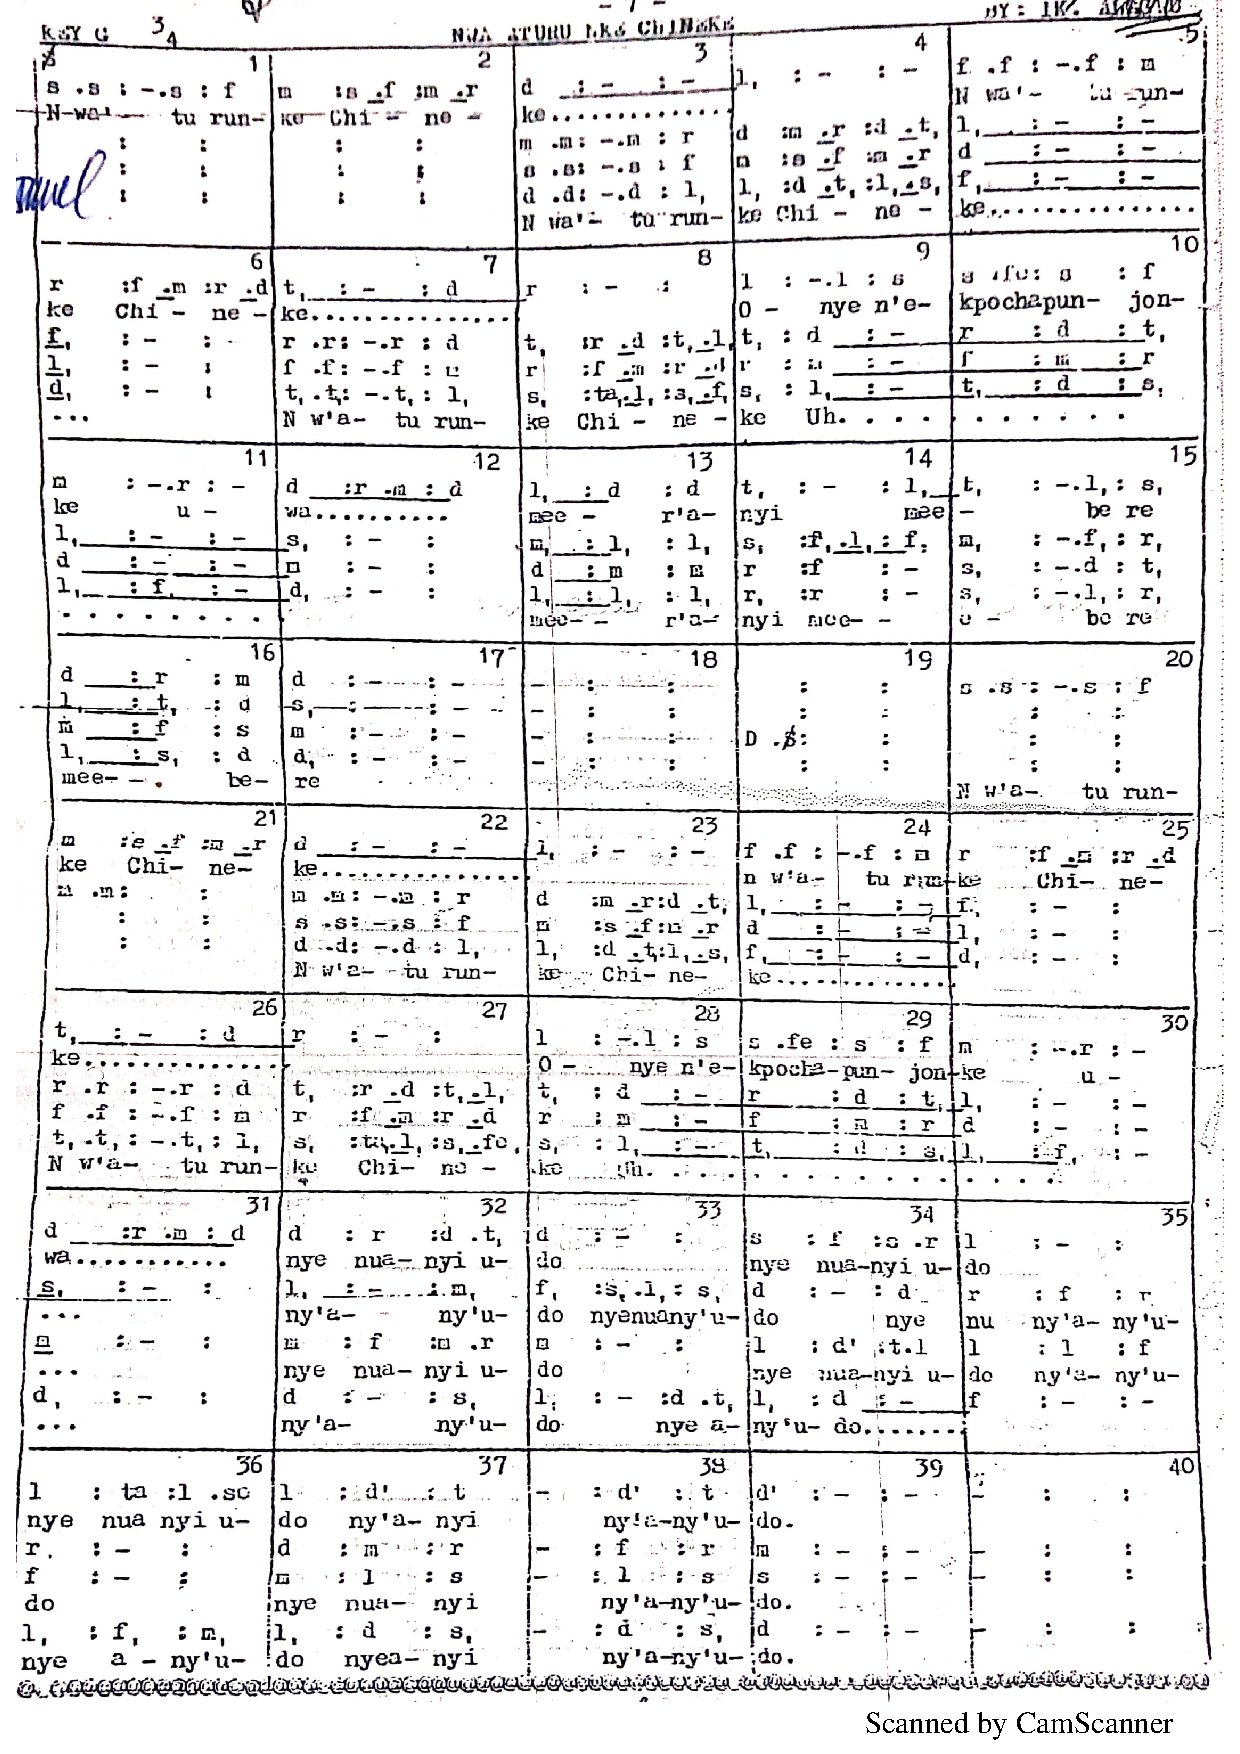 - 7 -
KEY G 3/4 NWA ATURU NKE CHINEKE BY: IK.
1 2 3 4 5
s .s : -.s : f m :s .f :m .r d : - : - l, : - : - f .f : -.f : m
N-wa'- tu run- ke Chi - ne - ke.............. N wa'- tu run-
: : : : m .m: -.m : r d :m .r :d .t, l, : - : -
: : : : s .s: -.s : f m :s .f :m .r d : - : -
: : : : d .d: -.d : l, l, :d .t, :l, .s, f, : - : -
N wa'- tu run- ke Chi - ne - ke..............
6 7 8 9 10
r :f .m :r .d t, : - : d r : - : l : -.l : s s .fe: s : f
ke Chi - ne - ke............... O - nye n'e- kpochapun- jon-
f, : - : r .r: -.r : d t, :r .d :t, .l, t, : d : - r : d : t,
l, : - : f .f: -.f : m r :f .m :r .d r : m : - f : m : r
d, : - : t, .t,: -.t, : l, s, :ta,.l, :s, .f, s, : l, : - t, : d : s,
... N w'a- tu run- ke Chi - ne - ke Uh. . . . . . . . . .
11 12 13 14 15
m : -.r : - d :r .m : d l, : d : d t, : - : l, t, : -.l, : s,
ke u - wa.......... mee - r'a- nyi mee - be re
l, : - : - s, : - : m, : l, : l, s, :f, .l, : f, m, : -.f, : r,
d : - : - m : - : d : m : m r :f : - s, : -.d : t,
l, : f, : - d, : - : l, : l, : l, r, :r : - s, : -.l, : r,
. . . . . . . mee- - r'a- nyi mee- - e - be re
16 17 18 19 20
d : r : m d : - : - - : : : : s .s : -.s : f
l, : t, : d s, : - : - - : : : : : :
m : f : s m : - : - - : : D .S: : : :
l, : s, : d d, : - : - - : : : : : :
mee- - . be- re N w'a- tu run-
21 22 23 24 25
m :s .f :m .r d : - : - l, : - : - f .f : -.f : m r :f .m :r .d
ke Chi- ne- ke............... n w'a- tu run- ke Chi- ne-
m .m: : m .m: -.m : r d :m .r:d .t, l, : - : - f, : - :
: : s .s: -.s : f m :s .f:m .r d : - : - l, : - :
: : d .d: -.d : l, l, :d .t,:l, .s, f, : - : - d, : - :
N w'a- tu run- ke Chi- ne- ke............
26 27 28 29 30
t, : - : d r : - : l : -.l : s s .fe : s : f m : -.r : -
ke............. O - nye n'e- kpocha-pun- jon- ke u -
r .r : -.r : d t, :r .d :t, .l, t, : d : - r : d : t, l, : - : -
f .f : -.f : m r :f .m :r .d r : m : - f : m : r d : - : -
t, .t, : -.t, : l, s, :ta,.l, :s, .fe, s, : l, : - t, : d : s, l, : f, : -
N w'a- tu run- ke Chi- ne - ke Uh. . . . . . . . . . . . . .
31 32 33 34 35
d :r .m : d d : r :d .t, d : - : s : f :s .r l : - :
wa........... nye nua- nyi u- do nye nua-nyi u- do
s, : - : l, : - : m, f, :s, .l, : s, d : - : d r : f : r
... ny'a- ny'u- do nyenuany'u- do nye nu ny'a- ny'u-
m : - : m : f :m .r m : - : l : d' :t.l l : l : f
... nye nua- nyi u- do nye nua-nyi u- do ny'a- ny'u-
d, : - : d : - : s, l, : - :d .t, l, : d : - f : - : -
... ny'a- ny'u- do nye a- ny'u- do.......
36 37 38 39 40
l : ta :l .se l : d' : t - : d' : t d' : - : - - : :
nye nua nyi u- do ny'a- nyi ny'a-ny'u- do.
r, : - : d : m : r - : f : r m : - : - - : :
f : - : m : l : s - : l : s s : - : - - : :
do nye nua- nyi ny'a-ny'u- do.
l, : f, : m, l, : d : s, - : d : s, d : - : - - : :
nye a - ny'u- do nyea- nyi ny'a-ny'u- do.
Scanned by CamScanner